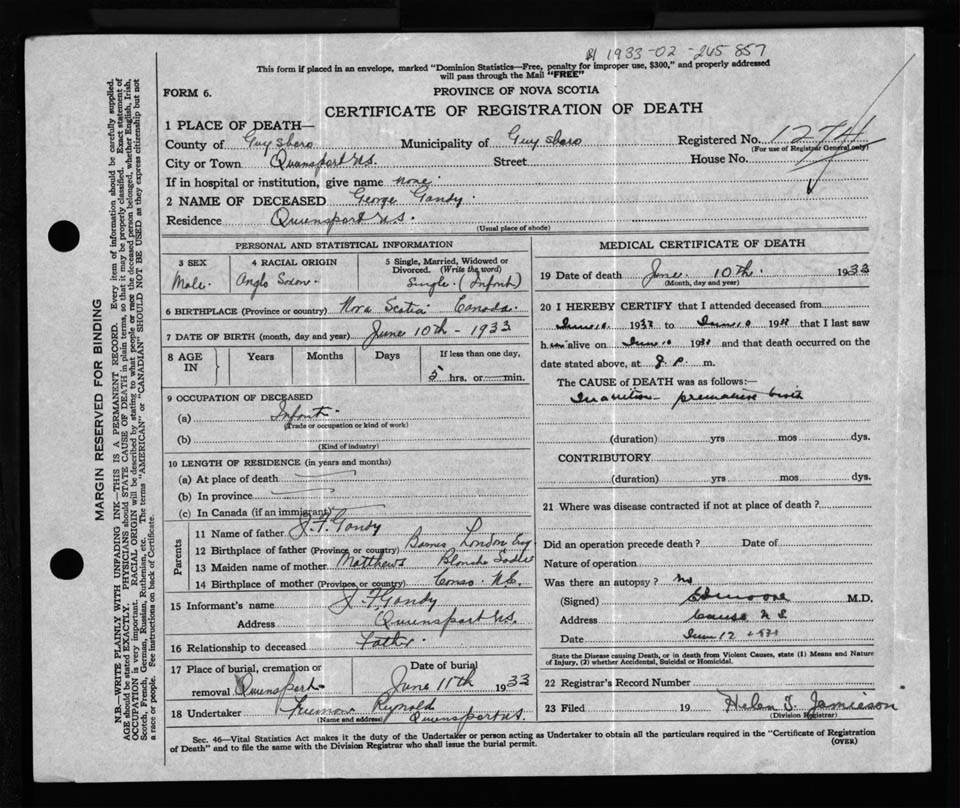 1933-02-265 857
This form if placed in an envelope, marked "Dominion Statistics—Free, penalty for improper use, $300," and properly addressed
will pass through the Mail "FREE"
FORM 6.
PROVINCE OF NOVA SCOTIA
CERTIFICATE OF REGISTRATION OF DEATH
1 PLACE OF DEATH—
County of Guysboro Municipality of Guysboro Registered No.
(For use of Registrar General only)
City or Town Queensport N.S. Street House No.
If in hospital or institution, give name none
2 NAME OF DECEASED George Gandy
Residence Queensport N.S.
(Usual place of abode)
PERSONAL AND STATISTICAL INFORMATION
3 SEX 4 RACIAL ORIGIN 5 Single, Married, Widowed or
Divorced. (Write the word)
Male Anglo Saxon Single (Infant)
6 BIRTHPLACE (Province or country) Nova Scotia Canada
7 DATE OF BIRTH (month, day and year) June 10th - 1933
8 AGE IN Years Months Days If less than one day,
5 hrs. or min.
9 OCCUPATION OF DECEASED
(a) Infant
(Trade or occupation or kind of work)
(b)
(Kind of industry)
10 LENGTH OF RESIDENCE (in years and months)
(a) At place of death
(b) In province
(c) In Canada (if an immigrant)
Parents
11 Name of father J. F. Gandy
12 Birthplace of father (Province or country) Barnes London Eng
13 Maiden name of mother Matthews Blanche Sadie
14 Birthplace of mother (Province or country) Canso N.S.
15 Informant's name J F Gandy
Address Queensport N.S.
16 Relationship to deceased Father
17 Place of burial, cremation or Date of burial
removal Queensport June 11th 1933
18 Undertaker Freeman Reynolds
(Name and address) Queensport N.S.
MEDICAL CERTIFICATE OF DEATH
19 Date of death June 10th 1933
(Month, day and year)
20 I HEREBY CERTIFY that I attended deceased from
June 10 1933 to June 10 1933 that I last saw
h im alive on June 10 1933 and that death occurred on the
date stated above, at p. m.
The CAUSE of DEATH was as follows:—
Inanition - premature birth
(duration) yrs mos dys.
CONTRIBUTORY
(duration) yrs mos dys.
21 Where was disease contracted if not at place of death?
Did an operation precede death? Date of
Nature of operation
Was there an autopsy? no
(Signed) Moore M.D.
Address Canso N S
Date June 12 1933
State the Disease causing Death, or in death from Violent Causes, state (1) Means and Nature
of Injury, (2) whether Accidental, Suicidal or Homicidal.
22 Registrar's Record Number
23 Filed 19 Helen T. Jamieson
(Division Registrar)
Sec. 46—Vital Statistics Act makes it the duty of the Undertaker or person acting as Undertaker to obtain all the particulars required in the "Certificate of Registration
of Death" and to file the same with the Division Registrar who shall issue the burial permit.
(OVER)
MARGIN RESERVED FOR BINDING
N.B.—WRITE PLAINLY WITH UNFADING INK—THIS IS A PERMANENT RECORD. Every item of information should be carefully supplied.
AGE should be stated EXACTLY. PHYSICIANS should STATE CAUSE OF DEATH in plain terms, so that it may be properly classified. Exact statement of
OCCUPATION is very important. RACIAL ORIGIN will be described by stating to what people or race the deceased person belonged, whether English, Irish,
Scotch, French, German, Russian, Ruthenian, etc. The terms "AMERICAN" or "CANADIAN" SHOULD NOT BE USED as they express citizenship but not
a race or people. See instructions on back of Certificate.